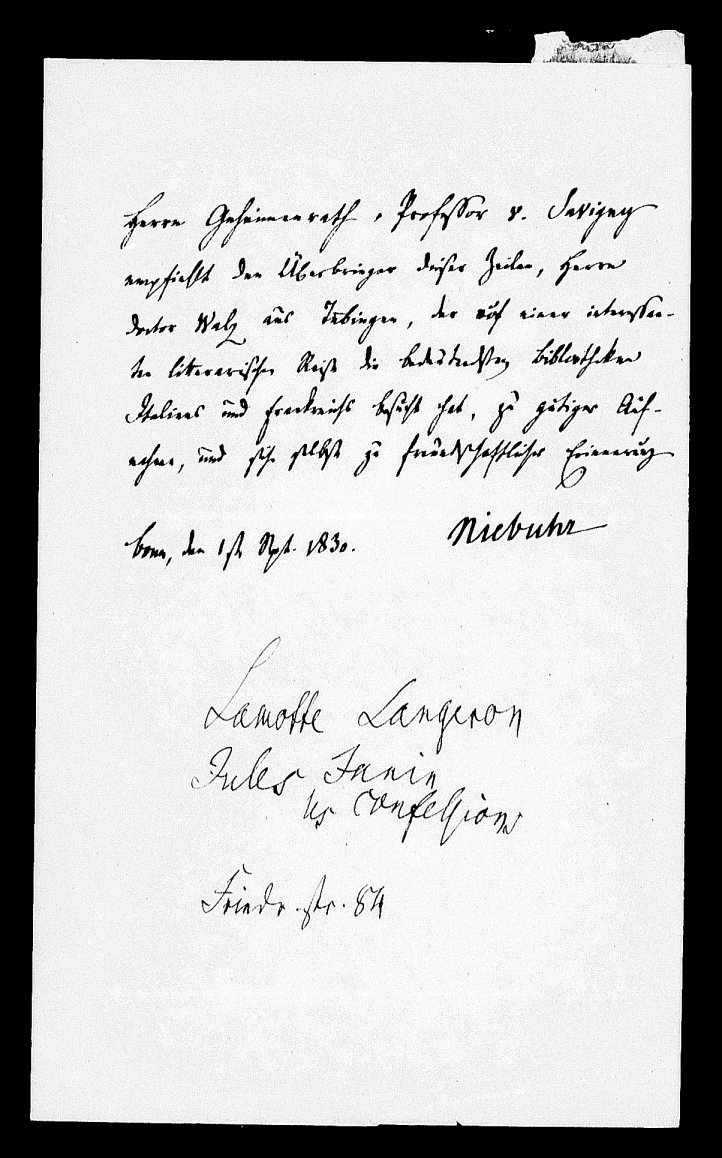 Herrn Geheimenrath, Professor v. Savigny
empfiehlt den Überbringer dieser Zeilen, Herrn
Doctor Walz aus Tübingen, der auf einer interessan-
ten literarischen Reise die bedeutendsten Bibliotheken
Italiens und Frankreichs besucht hat, zu gütiger Auf-
nahme, und sich selbst zu freundschaftlicher Erinnerung
Bonn, den 1ste Sept. 1830.
Niebuhr
Lamotte Langeron
Jules Janin
les Confessions
Friedr. str. 84